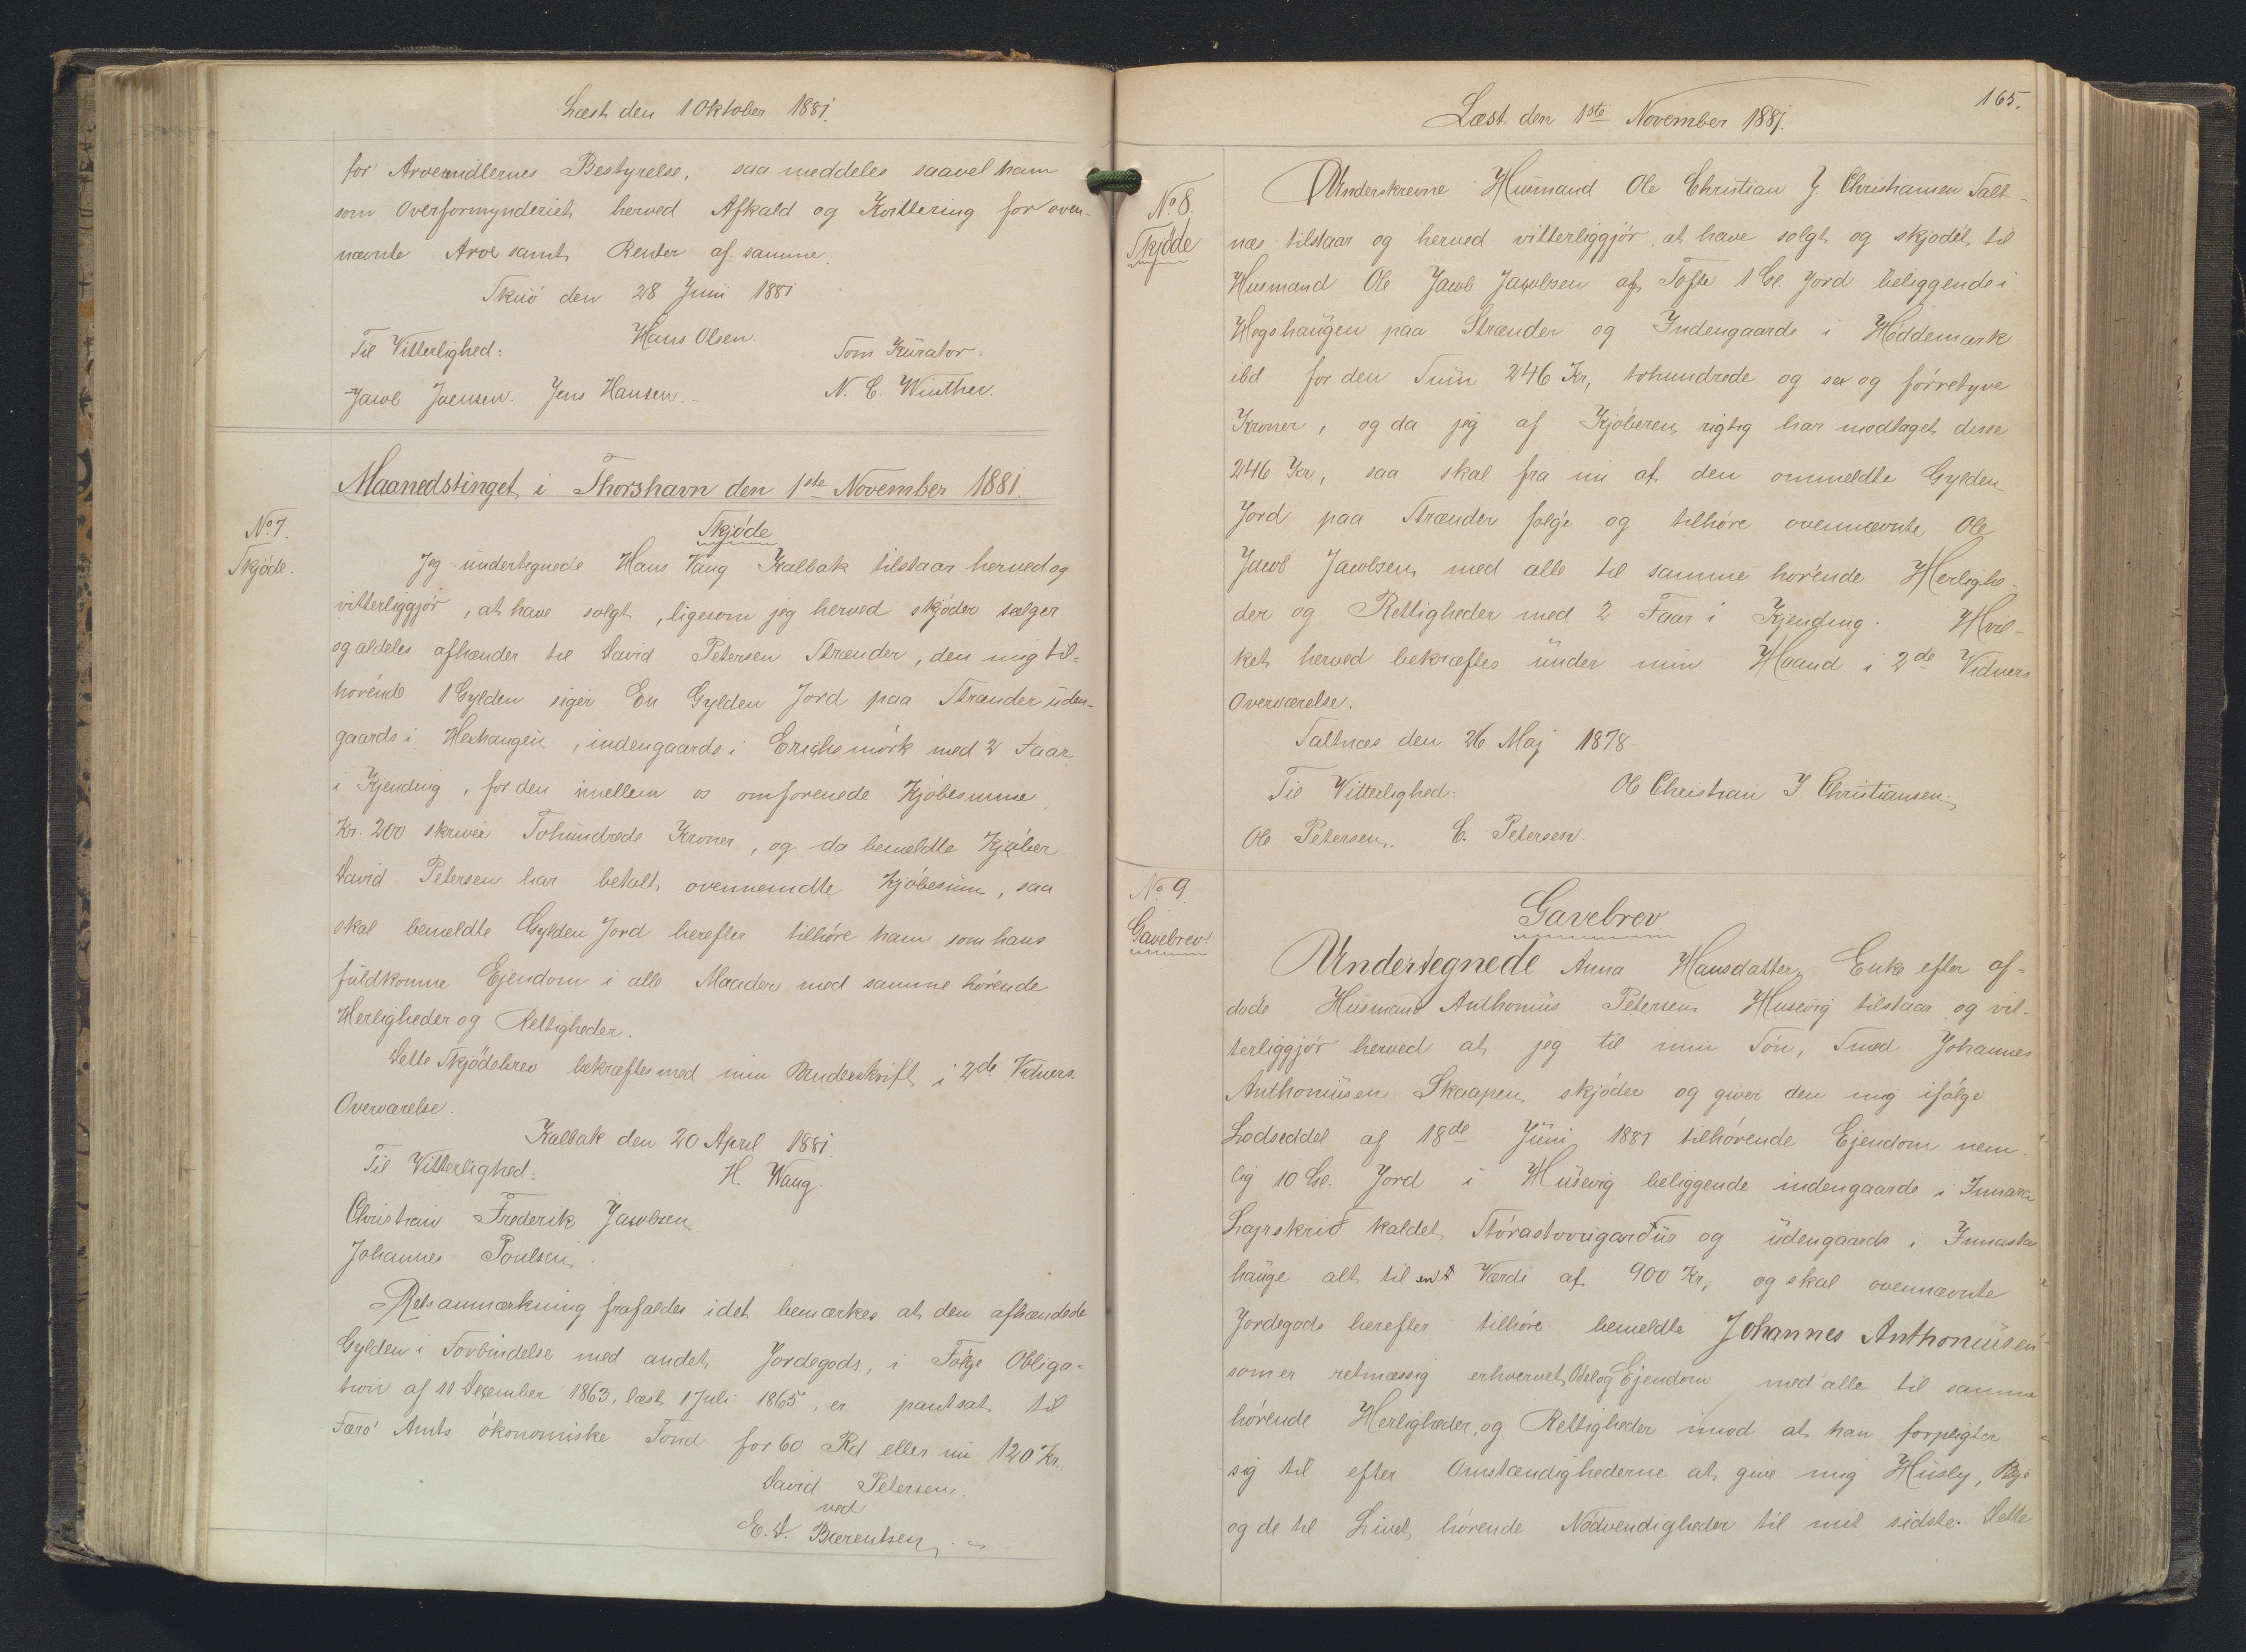 Læst den 1 Oktober 1881.
for Arvemidlernes Bestyrelse, saa meddeles saavel ham
som Overformynderiet herved Afkald og Kvittering for oven-
nævnte Arv samt Renter af samme.
Skuö den 28 Juni 1881
Hans Olsen.
Til Vitterlighed:
Som Kurator.
Jacob Joensen. Jens Hansen.
N. C. Winther.
Maanedstinget i Thorshavn den 1ste November 1881.
No. 7.
Skjöde.
Skjöde
Jeg undertegnede Hans Vang Kalbak tilstaar herved og
vitterliggjör, at have solgt, ligesom jeg herved skjöder sælger
og aldeles afhænder til David Petersen Strænder, den mig til-
hörende 1 Gylden siger En Gylden Jord paa Strænder uden-
gaards i Heshaugen, indengaards i Erichsmörk med 2 Faar
i Kjending, for den imellem os omforenede Kjöbesumme
Kr. 200 skriver Tohundrede Kroner, og da bemeldte Kjöber
David Petersen har betalt ovennemdte Kjöbesum, saa
skal bemeldte Gylden Jord herefter tilhöre ham som hans
fuldkomne Ejendom i alle Maader med samme hörende
Herligheder og Rettigheder.
Dette Skjödebrev bekræftes med min Underskrift i 2de Vidners
Overværelse.
Kalbak den 20 April 1881.
Til Vitterlighed:
H. Wang.
Christian Frederik Jacobsen
Johannes Poulsen.
Retsanmærkning frafaldes idet bemærkes at den afhændede
Gylden i Forbindelse med andet Jordegods, i Følge Obliga-
tion af 11 December 1863, læst 1 Juli 1865, er pantsat til
Færö Amts ökonomiske Fond for 60 Rd eller nu 120 Kr.
David Petersen.
ved
E. D. Bærentsen.
165.
Læst den 1ste November 1881.
No. 8.
Skjöde
Underskrevne Husmand Ole Christian J. Christiansen Salt-
næs tilstaar og herved vitterliggjör at have solgt og skjodet til
Husmand Ole Jacob Jacobsen af Tofte 1 Gl. Jord beliggende i
Hegshaugen paa Strænder og Indengaards i Höddemærk
ibd for den Sum 246 Kr, tohundrede og sex og förretyve
Kroner, og da jeg af Kjøberen rigtig har modtaget disse
246 Kr, saa skal fra nu af den ommeldte Gylden
Jord paa Strænder følge og tilhöre ovennævnte Ole
Jacob Jacobsen med alle til samme hørende Herlighe-
der og Rettigheder med 2 Faar i Kjending. Hvil-
ket herved bekræftes under min Haand i 2de Vidners
Overværelse.
Saltnæs den 26 Maj 1878
Til Vitterlighed:
Ole Christian J Christiansen
Ole Petersen. C. Petersen.
No 9.
Gavebrev.
Gavebrev
Undertegnede Anna Hansdatter, Enke efter af-
døde Husmand Anthonius Petersen Husevig tilstaar og vit-
terliggjör herved at jeg til min Sön, Smed Johannes
Anthoniusen Skaapen skjöder og giver den mig ifölge
Lodseddel af 18de Juni 1881 tilhörende Ejendom nem-
lig 10 Gl. Jord i Husevig beliggende indengaards i Innara
Lajrskrið kaldet Stórastovugarður og udengaards i Innasta
hauge alt til en Værdi af 900 Kr, og skal ovennævnte
Jordegods herefter tilhöre bemeldte Johannes Anthoniusen
som er retmæssig erhvervet Odel og Ejendom med alle til samme
hörende Herligheder og Rettigheder imod at han forpligter
sig til efter Omstændighederne at give mig Husly, Pleje
og de til Livet hörende Nödvendigheder til mit sidste. Dette